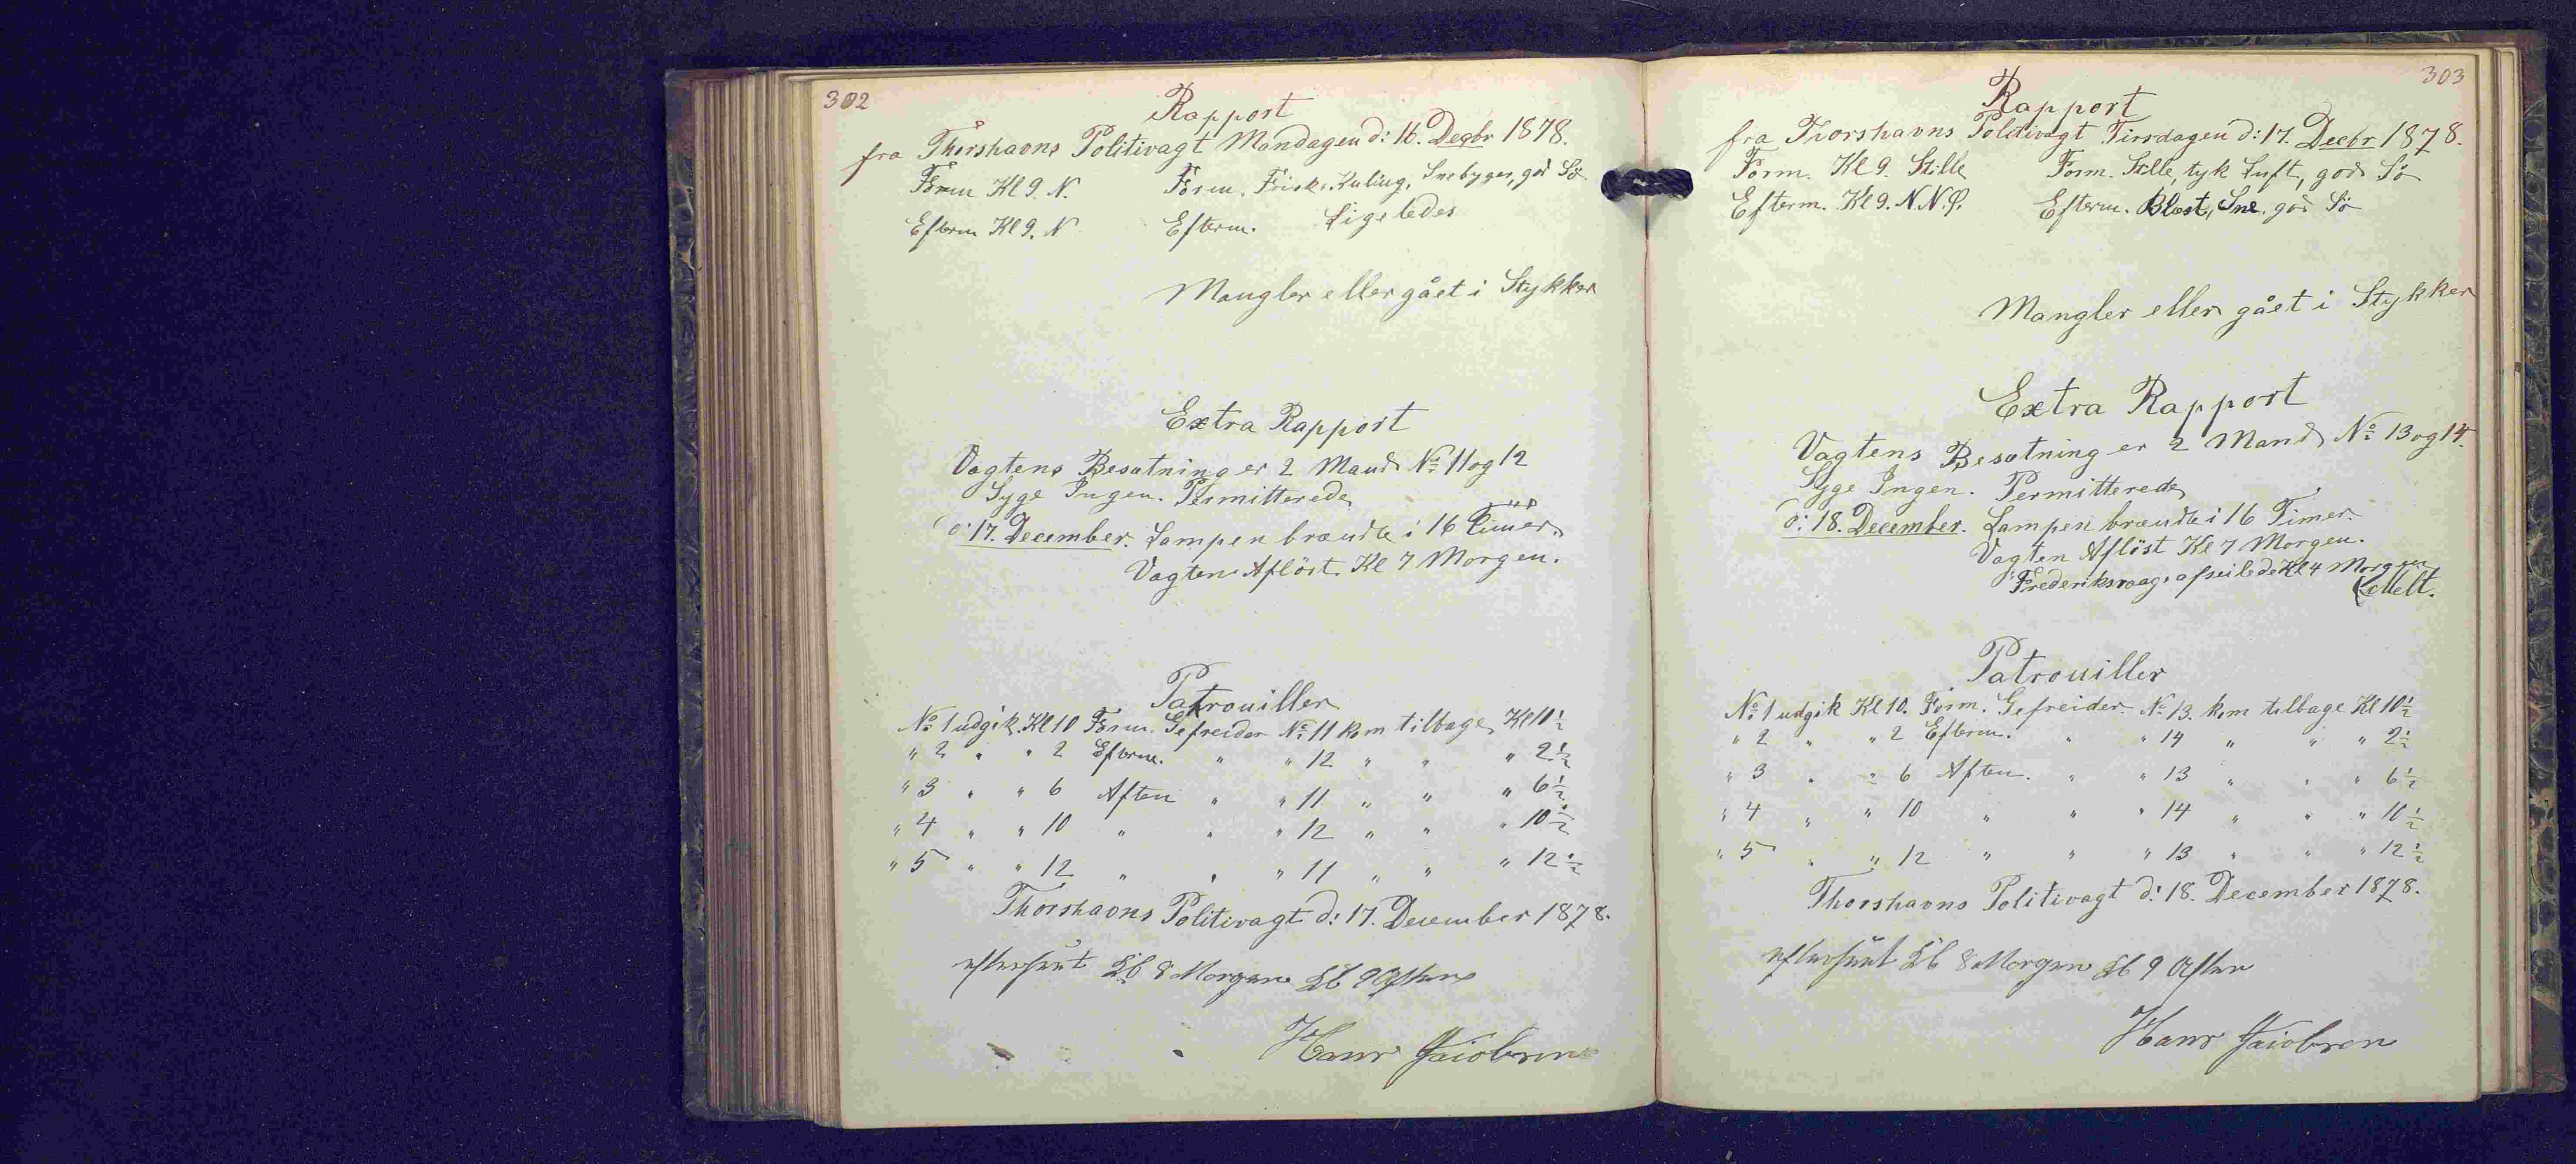 302
Rapport
fra Thorshavns Politivagt Mandagen d: 16. Decbr 1878.
Form Kl 9. N. Form. Frisk Kuling, Snebyger, god Sö
Efterm Kl 9. N Efterm. Ligeledes
Mangler eller gået i Stykker
Extra Rapport
Vagtens Besætning er 2 Mand No 11 og 12
Syge Ingen. Permitterede
d: 17. December. Lampen brændte i 16 Timer.
Vagten Aflöst Kl 7 Morgen.
Patrouiller
No 1 udgik Kl 10 Form. Gefreider No 11 kom tilbage Kl 10 1/2
" 2 " " 2 Efterm. " " 12 " " " 2 1/2
" 3 " " 6 Aften " " 11 " " " 6 1/2
" 4 " " 10 " " " 12 " " " 10 1/2
" 5 " " 12 " " " 11 " " " 12 1/2
Thorshavns Politivagt d: 17. December 1878.
efterseet Kl 8 Morgen Kl 9 Aften
Hans Jacobsen
303
Rapport
fra Thorshavns Politivagt Tirsdagen d: 17. Decbr 1878.
Form. Kl 9. Stille Form. Stille, tyk Luft, god Sö
Efterm. Kl 9. N.N.O. Efterm. Blæst, Sne. god Sö
Mangler eller gået i Stykker
Extra Rapport
Vagtens Besætning er 2 Mand No 13 og 14.
Syge Ingen. Permitterede
d: 18. December. Lampen brændte i 16 Timer.
Vagten Aflöst Kl 7 Morgen.
Frederiksvaag afseilede Kl 4 Morgen
(Melt.
Patrouiller
No 1 udgik Kl 10. Form. Gefreider No 13. kom tilbage Kl 10 1/2
" 2 " " 2 Efterm. " " 14 " " " 2 1/2
" 3 " " 6 Aften. " " 13 " " " 6 1/2
" 4 " " 10 " " " 14 " " " 10 1/2
" 5 " " 12 " " " 13 " " " 12 1/2
Thorshavns Politivagt d: 18. December 1878.
efterseet Kl 8 Morgen Kl 9 Aften
Hans Jacobsen